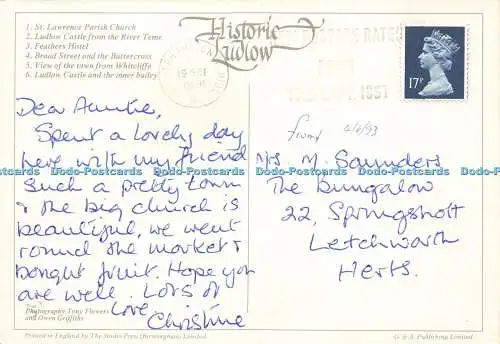 1. St. Lawrence Parish Church
2. Ludlow Castle from the River Teme
3. Feathers Hotel
4. Broad Street and the Buttercross
5. View of the town from Whitcliffe
6. Ludlow Castle and the inner bailey
Historic
Ludlow
17P
Dear Auntie,
Spent a lovely day
here with my friend
Such a pretty town
& the big church is
beautiful, we went
round the market &
bought fruit. Hope you
are well. Lots of
Love
Christine
Mrs M. Saunders
The Bungalow
22, Springshott
Letchworth
Herts.
Dodo-Postcards Dodo-Postcards Dodo-Postcards Dodo-Postcards
Photography Tony Flowers
and Owen Griffiths
Printed in England by The Studio Press (Birmingham) Limited.
Publishing Limited